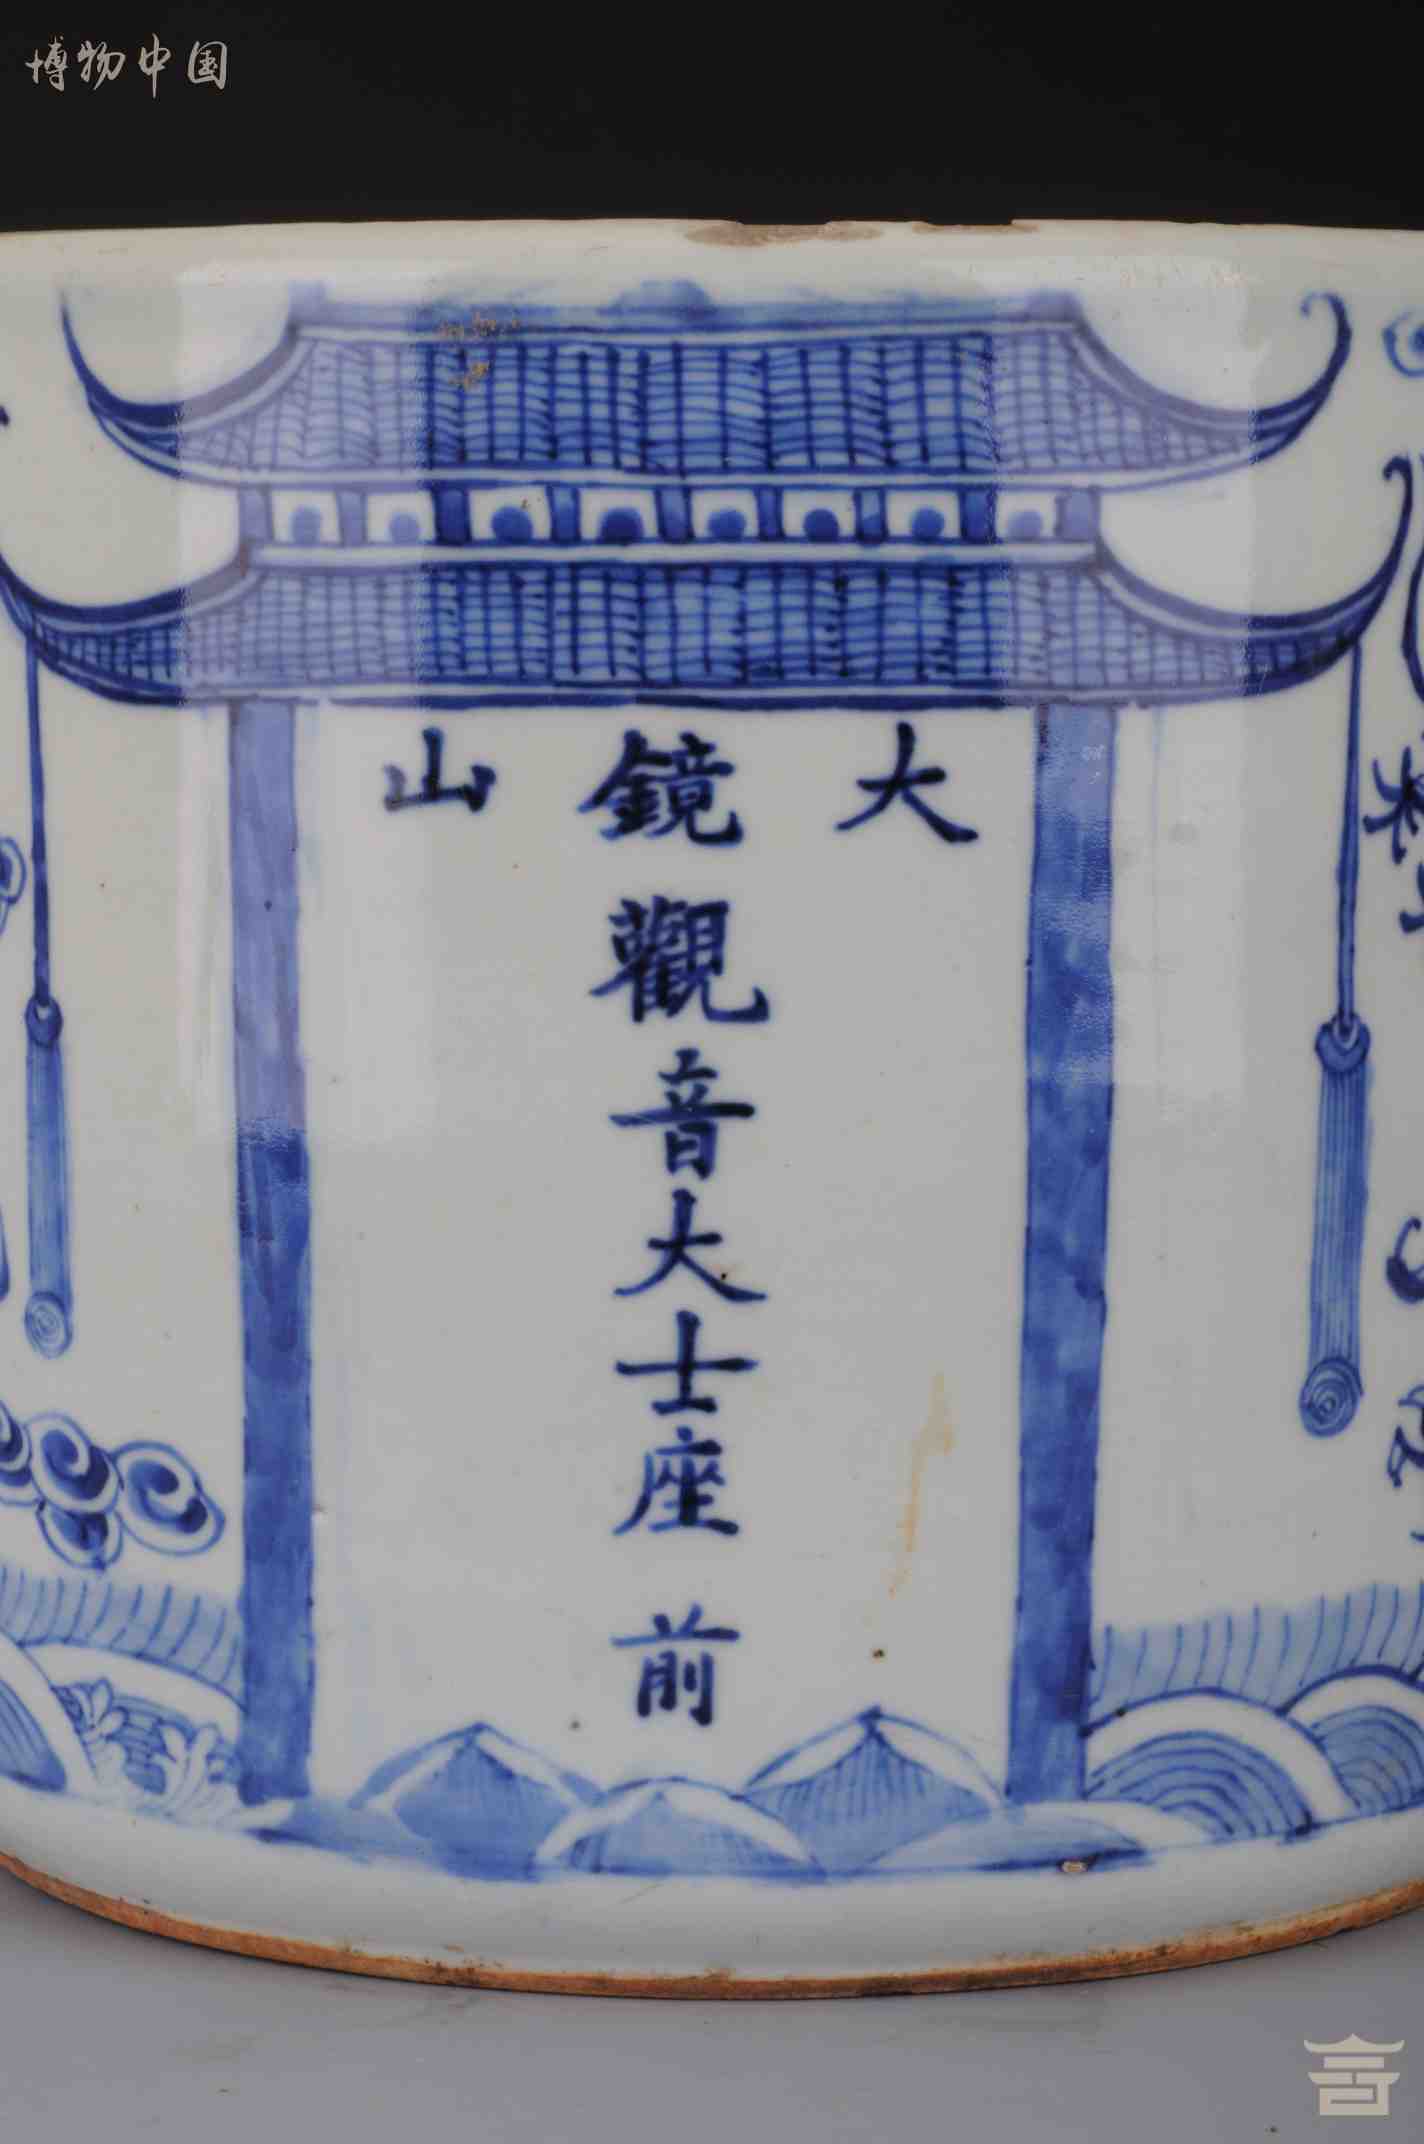 博物中国
大鏡山
觀音大士座前